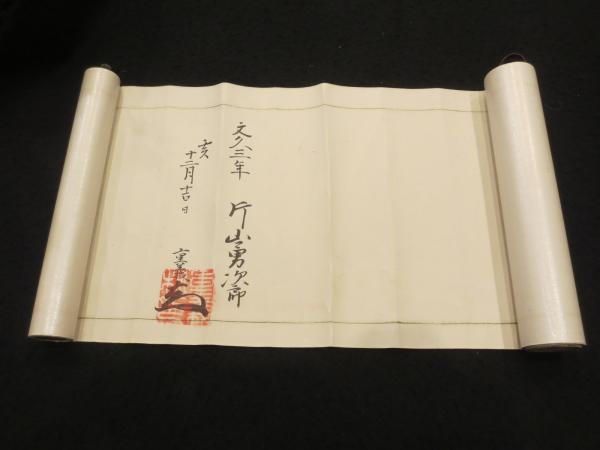 文久三年 片山勇次郎
亥
十二月吉日
重義